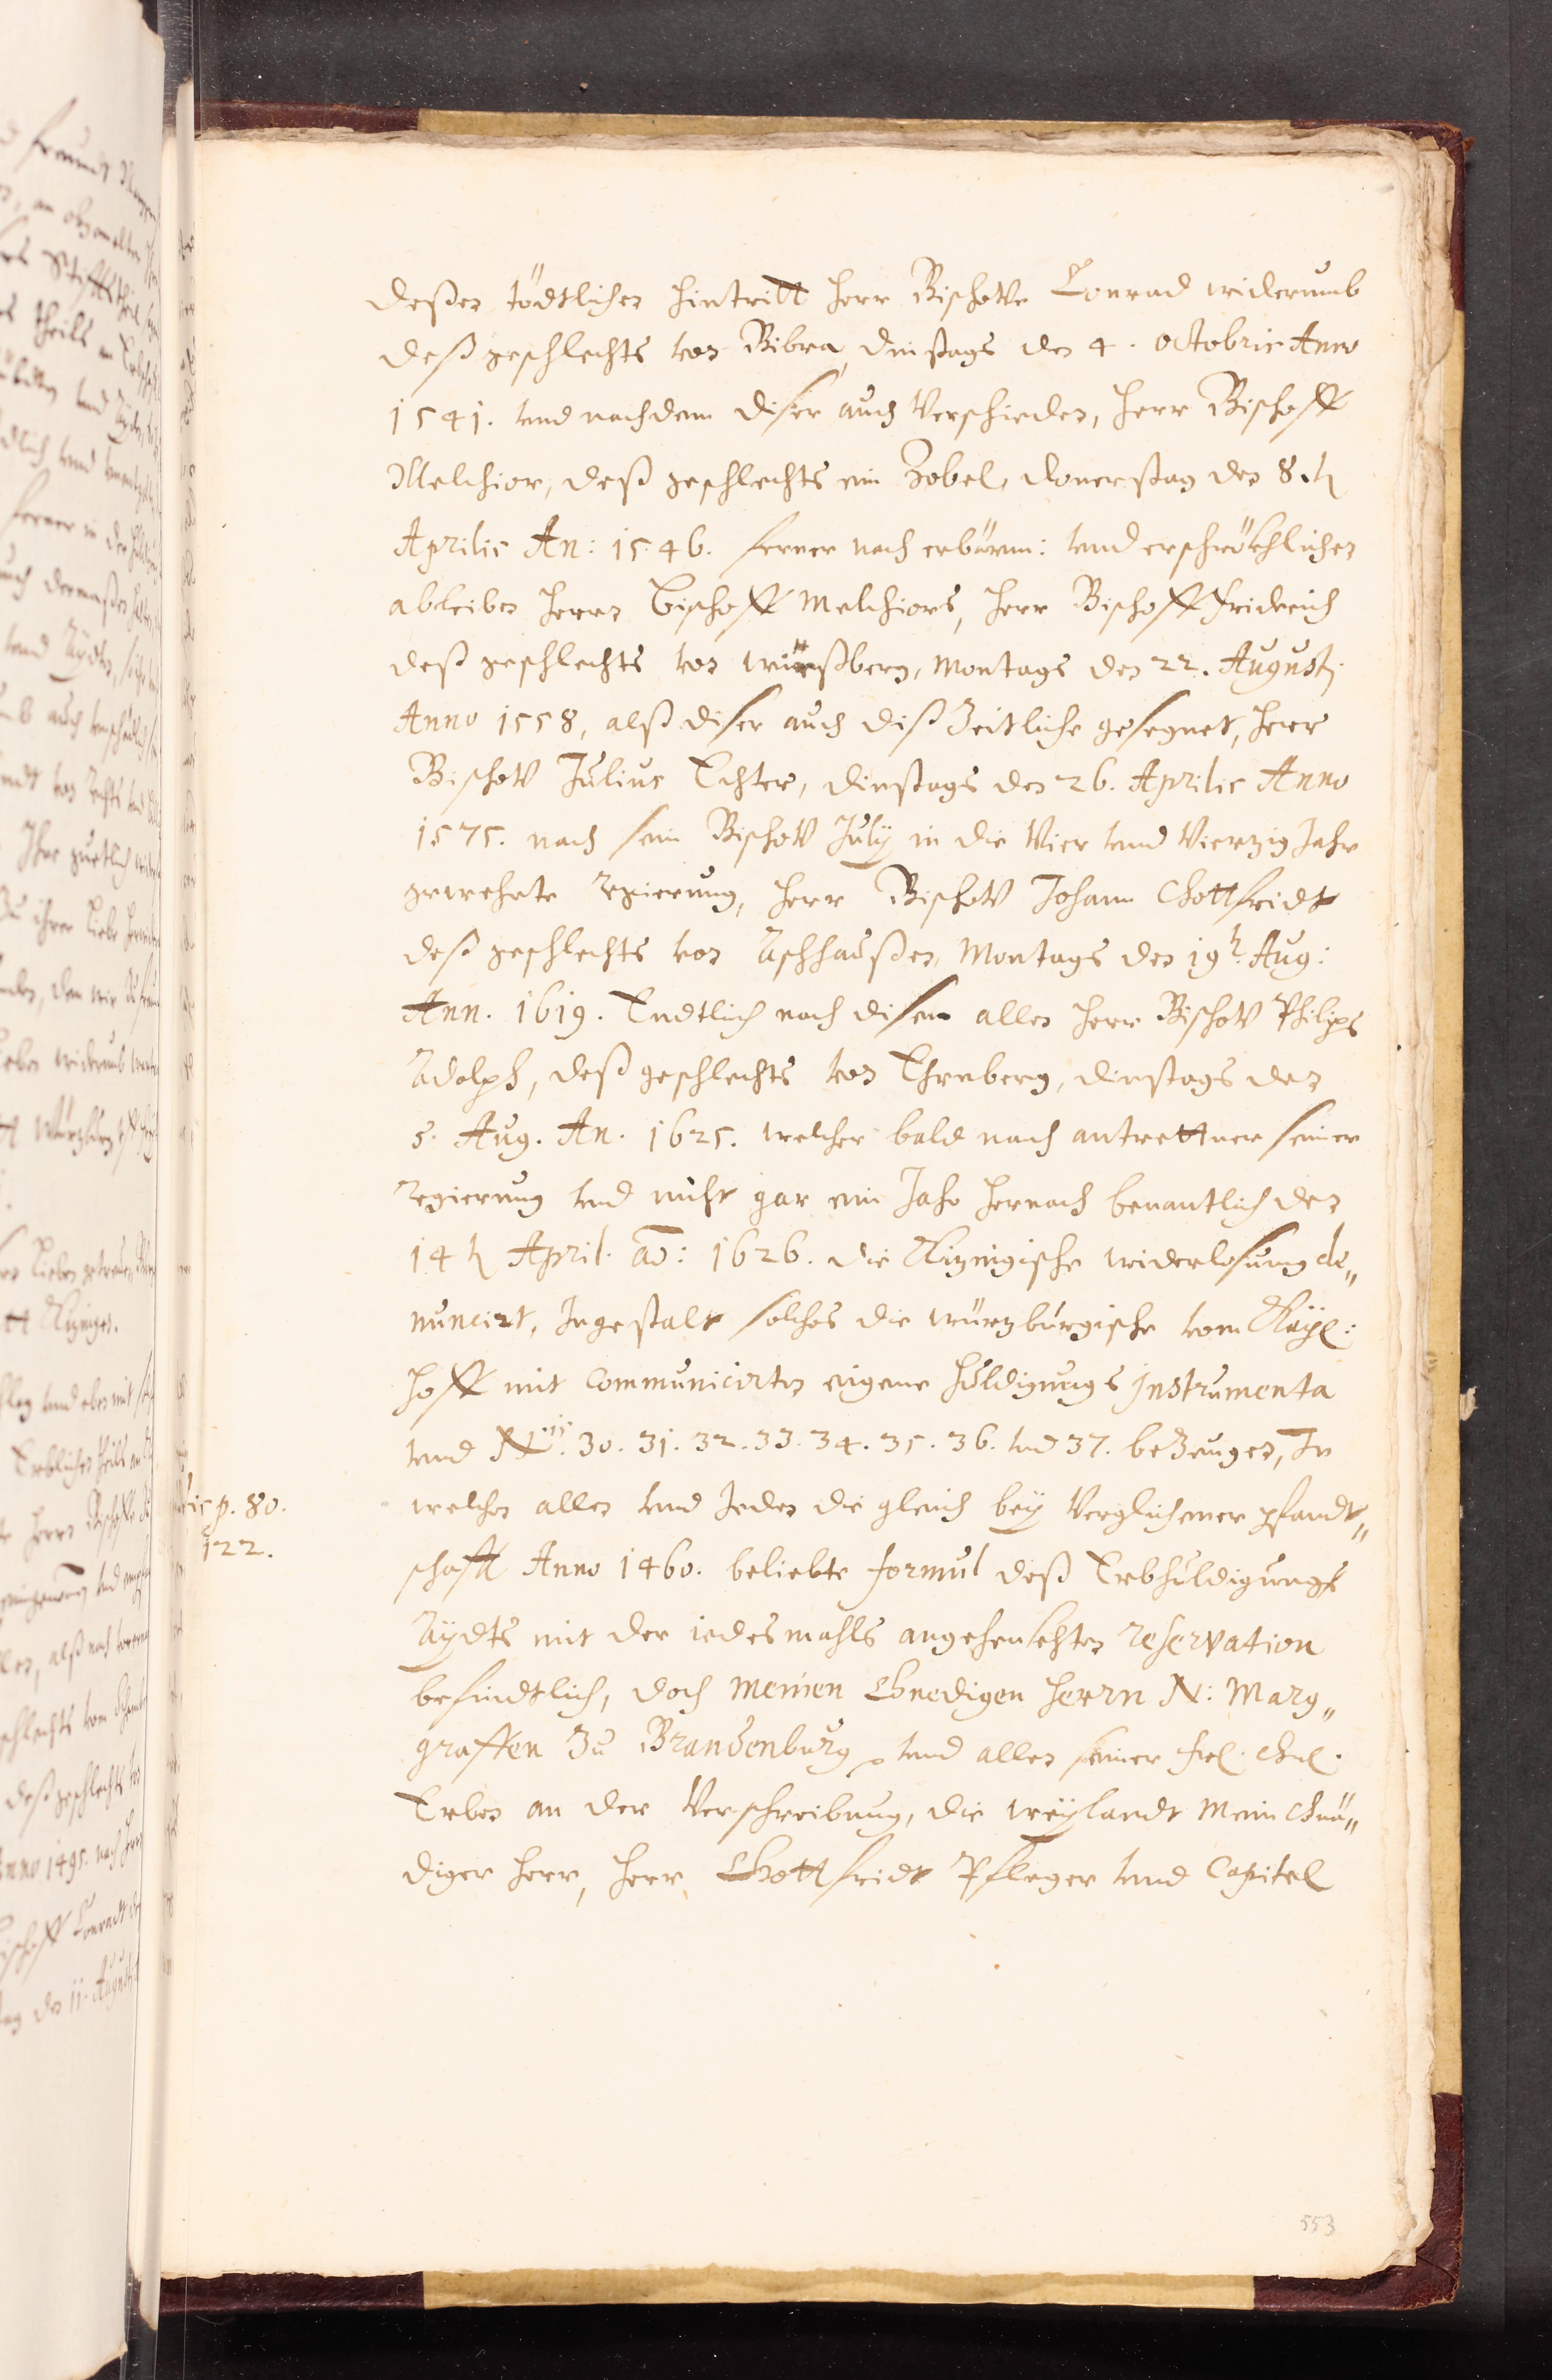 deßen tödtlichen hintritt Herr Bischove Conrad widerumb
deß geschlechts von Bibra, dinstags den 4. octobris Anno
1541. vnd nachdem diser auch Verschieden, Herr Bischoff
Melchior, deß geschlechts ein Zobel, donerstag den 8.t
Aprilis An: 1546. ferner nach erbärm: vnd erschröckhlichen
ableiben Herrn Bischoff Melchiors, Herr Bischoff Friderich
deß geschlechts von würßberg, Montags den 22. Augusti
Anno 1558, alß diser auch diß Zeitliche gesegnet, Herr
Bischov Julius Echter, dinstags den 26. Aprilis Anno
1575. nach sein Bischov Julÿ in die Vier vnd Vierzig Jahr
gewehrte Regierung, Herr Bischov Johann Gottfridt
deß geschlechts von Aschhaußen, Montags den 19t. Aug:
Ann. 1619. Endtlich nach disem allen Herr Bischov Philips
Adolph, deß geschlechts von Ehrnberg, dinstags den
5. Aug. An. 1625. welcher bald nach antrettner seiner
Regierung vnd nicht gar ein Jahr hernach benantlich den
14t April. ao: 1626. die Kizingische widerlosung de„
nuncirt, Ingestalt solches die würzburgische vom Kaÿl:
Hoff mit Communicirten eigene Huldigungs Instrumenta
vnd N. 30. 31. 32. 33. 34. 35. 36. vnd 37. beZeugen, In
welchen allen vnd Jeden die gleich beÿ Verglichener pfandt„
schafft Anno 1460. beliebte formul deß Erbhuldigungs
Aÿdts mit der iedesmahls angehenckhten reservation
befindtlich, doch meinen Gnedigen Herrn N: Marg„
graffen Zu Brandenburg vnd allen seiner frl. Gnl.
Erben an der Verschreibung, die weÿlandt Mein Gnä„
diger Herr, Herr Gottfridt Pfleger vnd Capitel
p. 80.
122.
553